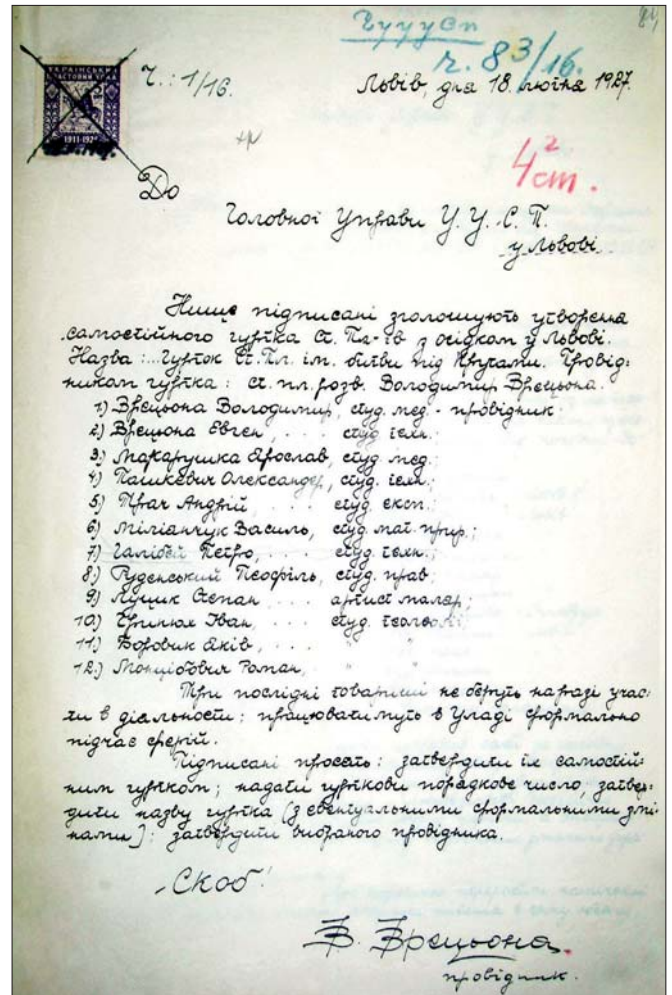 ГУУУСП
ч. 83/16.
Ч.: 1/16.
Львів, дня 18. лютня 1927.
1911-192
2
4 ст.
До
Головної Управи У. У. С. П.
у Львові.
Нище підписані зголошують утворення
самостійного гуртка Ст. Пл-ів з осідком у Львові.
Назва: Гурток Ст. Пл. ім. битви під Крутами. Провід-
ником гуртка: ст. пл. розв. Володимир Врецьона.
1) Врецьона Володимир, студ. мед. - провідник.
2) Врецьона Евген, . . . студ. техн.;
3) Макарушка Ярослав, студ. мед.;
4) Пашкевич Олександер, студ. техн.;
5) Прач Андрій, . . . студ. експ.;
6) Міліянчук Василь, студ. мат. прир.;
7) Галібей Петро, . . . студ. техн.;
8) Руденський Теофіль, студ. прав;
9) Луцик Степан, . . . артист маляр;
10.) Гриньох Іван, . . . студ. теольоґ.;
11.) Боровик Яків, . . . " "
12.) Монцібович Роман, " "
Три послідні товариші не беруть наразі учас-
ти в діяльности; працюватимуть в Уладі формально
підчас ферій.
Підписані просять: затвердити їх самостій-
ним гуртком; надати гурткови порядкове число, затвер-
дити назву гуртка (з евентуальними формальними змі-
нами); затвердити вибраного провідника.
"Скоб!
В. Врецьона.
провідник.